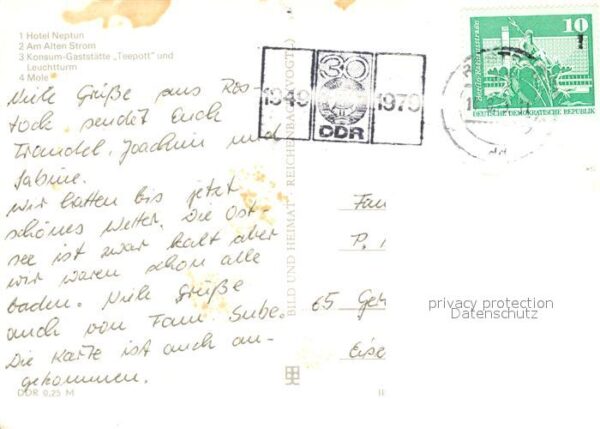 1 Hotel Neptun
2 Am Alten Strom
3 Konsum-Gaststätte „Teepott" und
Leuchtturm
4 Mole
Viele Grüße aus Ros-
tock sendet Euch
Traudel, Joachim und
Sabine.
Wir hatten bis jetzt
schönes Wetter. Die Ost-
see ist zwar kalt aber
wir waren schon alle
baden. Viele Grüße
auch von Fam. Sube.
Die Karte ist auch an-
gekommen.
DDR 0,25 M
BILD UND HEIMAT REICHENBACH (VOGTL)
30
1949
1979
DDR
10
Berlin-Rathausstraße
DEUTSCHE DEMOKRATISCHE REPUBLIK
Fam
P.
65 Ge
Eise
privacy protection
Datenschutz